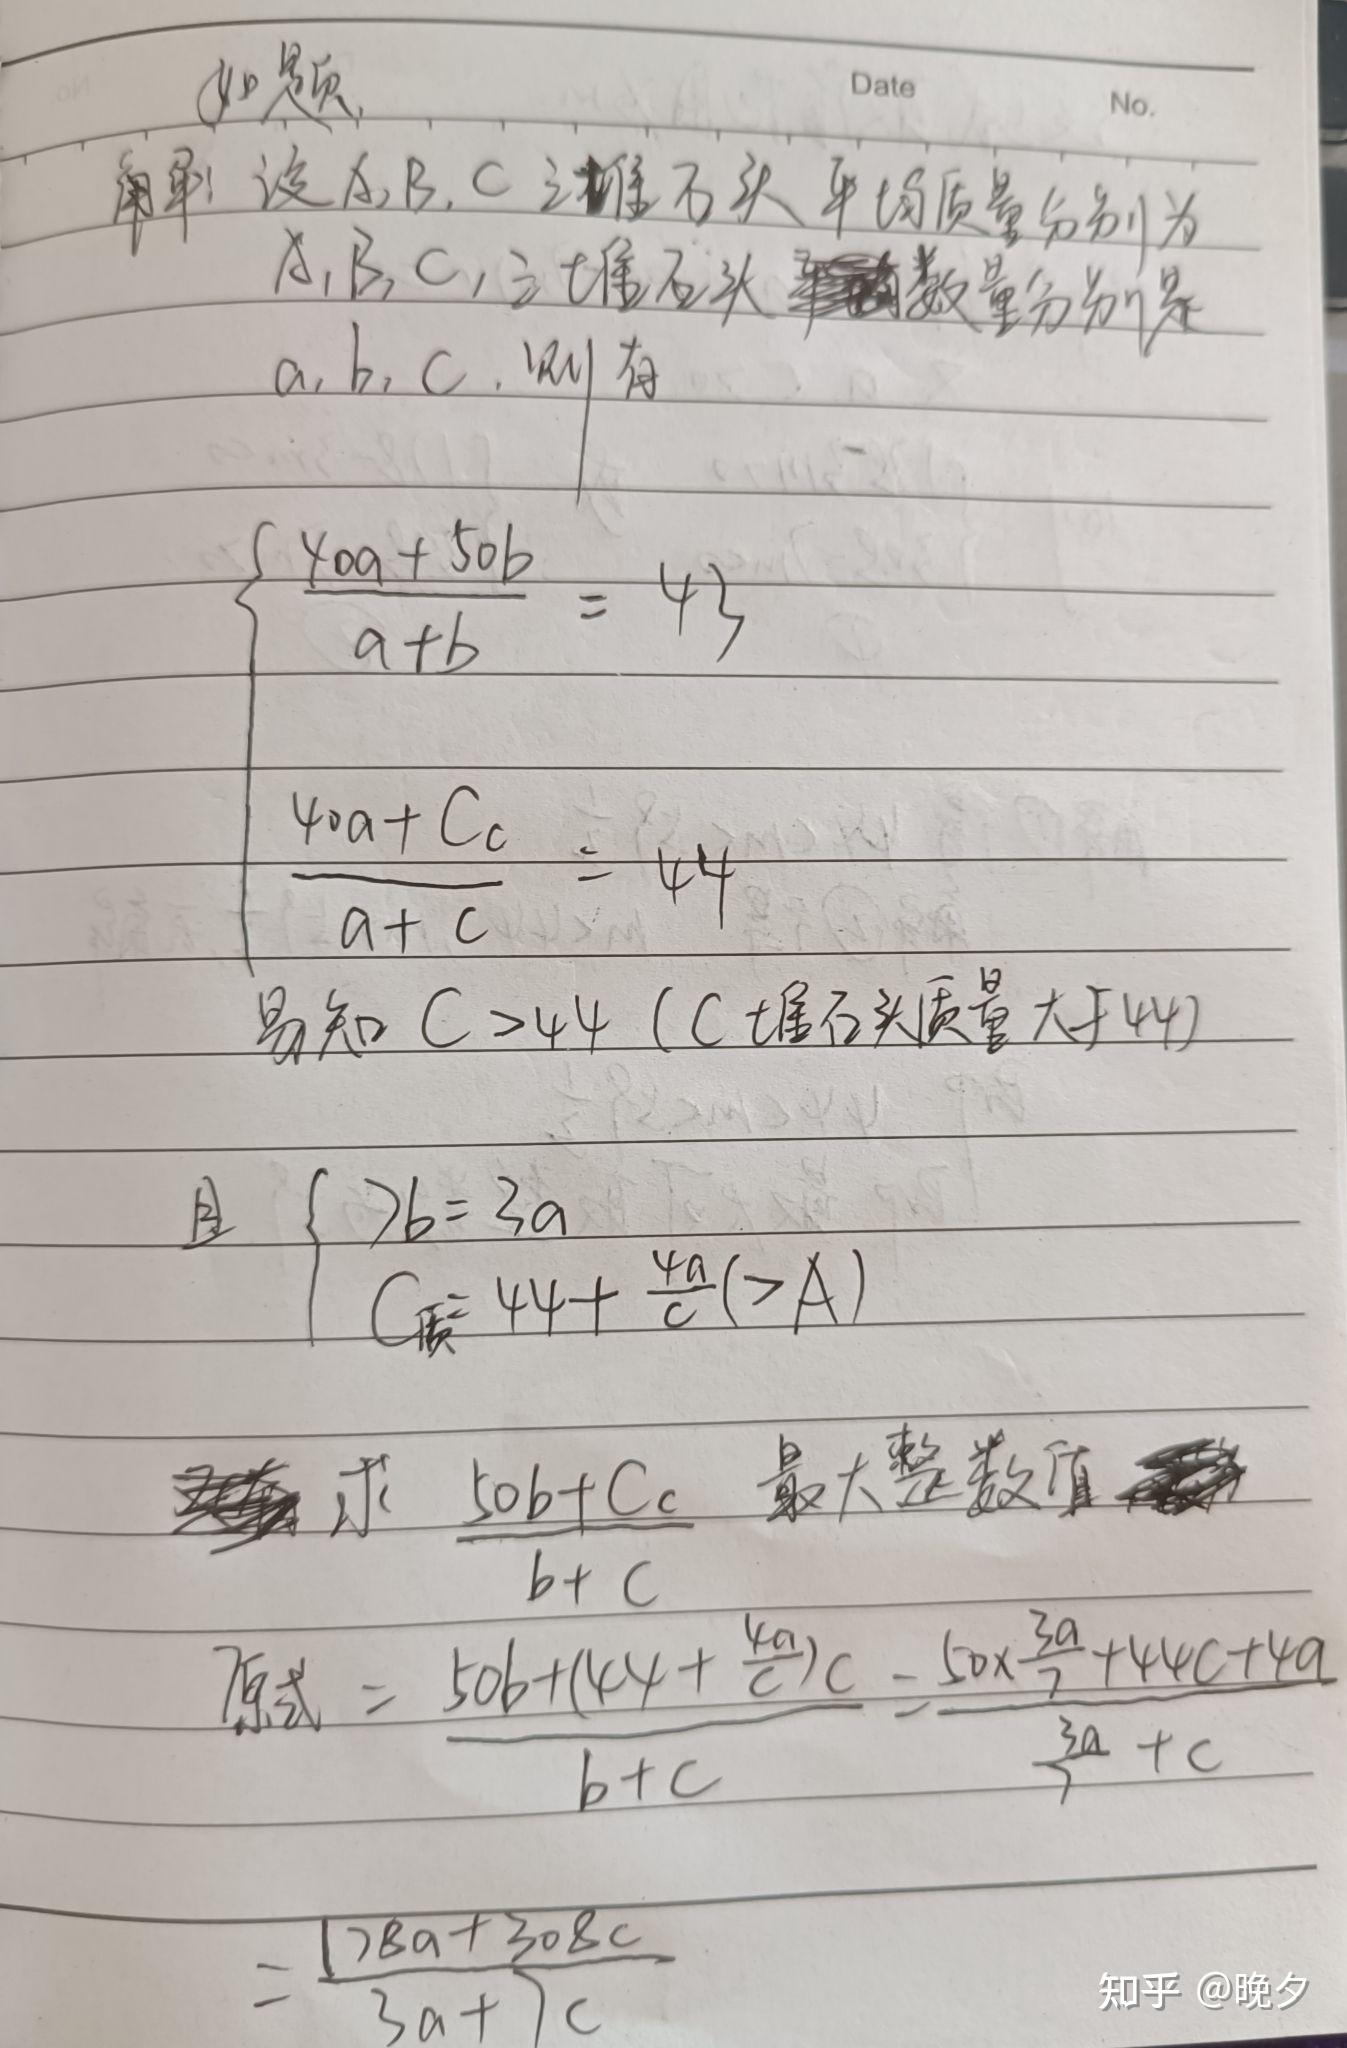 如题,
Date
No.
解: 设A, B, C三堆石头平均质量分别为
A, B, C, 三堆石头数量分别是
a, b, c, 则有
{ (40a+50b)/(a+b) = 43
(40a+Cc)/(a+c) = 44
易知 C>44 (C堆石头质量大于44)
且 { 7b=3a
C质=44+4a/c(>A)
求 (50b+Cc)/(b+c) 最大整数值
原式 = (50b+(44+4a/c)c)/(b+c) = (50×3a/7+44c+4a)/(3a/7+c)
= (178a+308c)/(3a+7c)
知乎 @晚夕